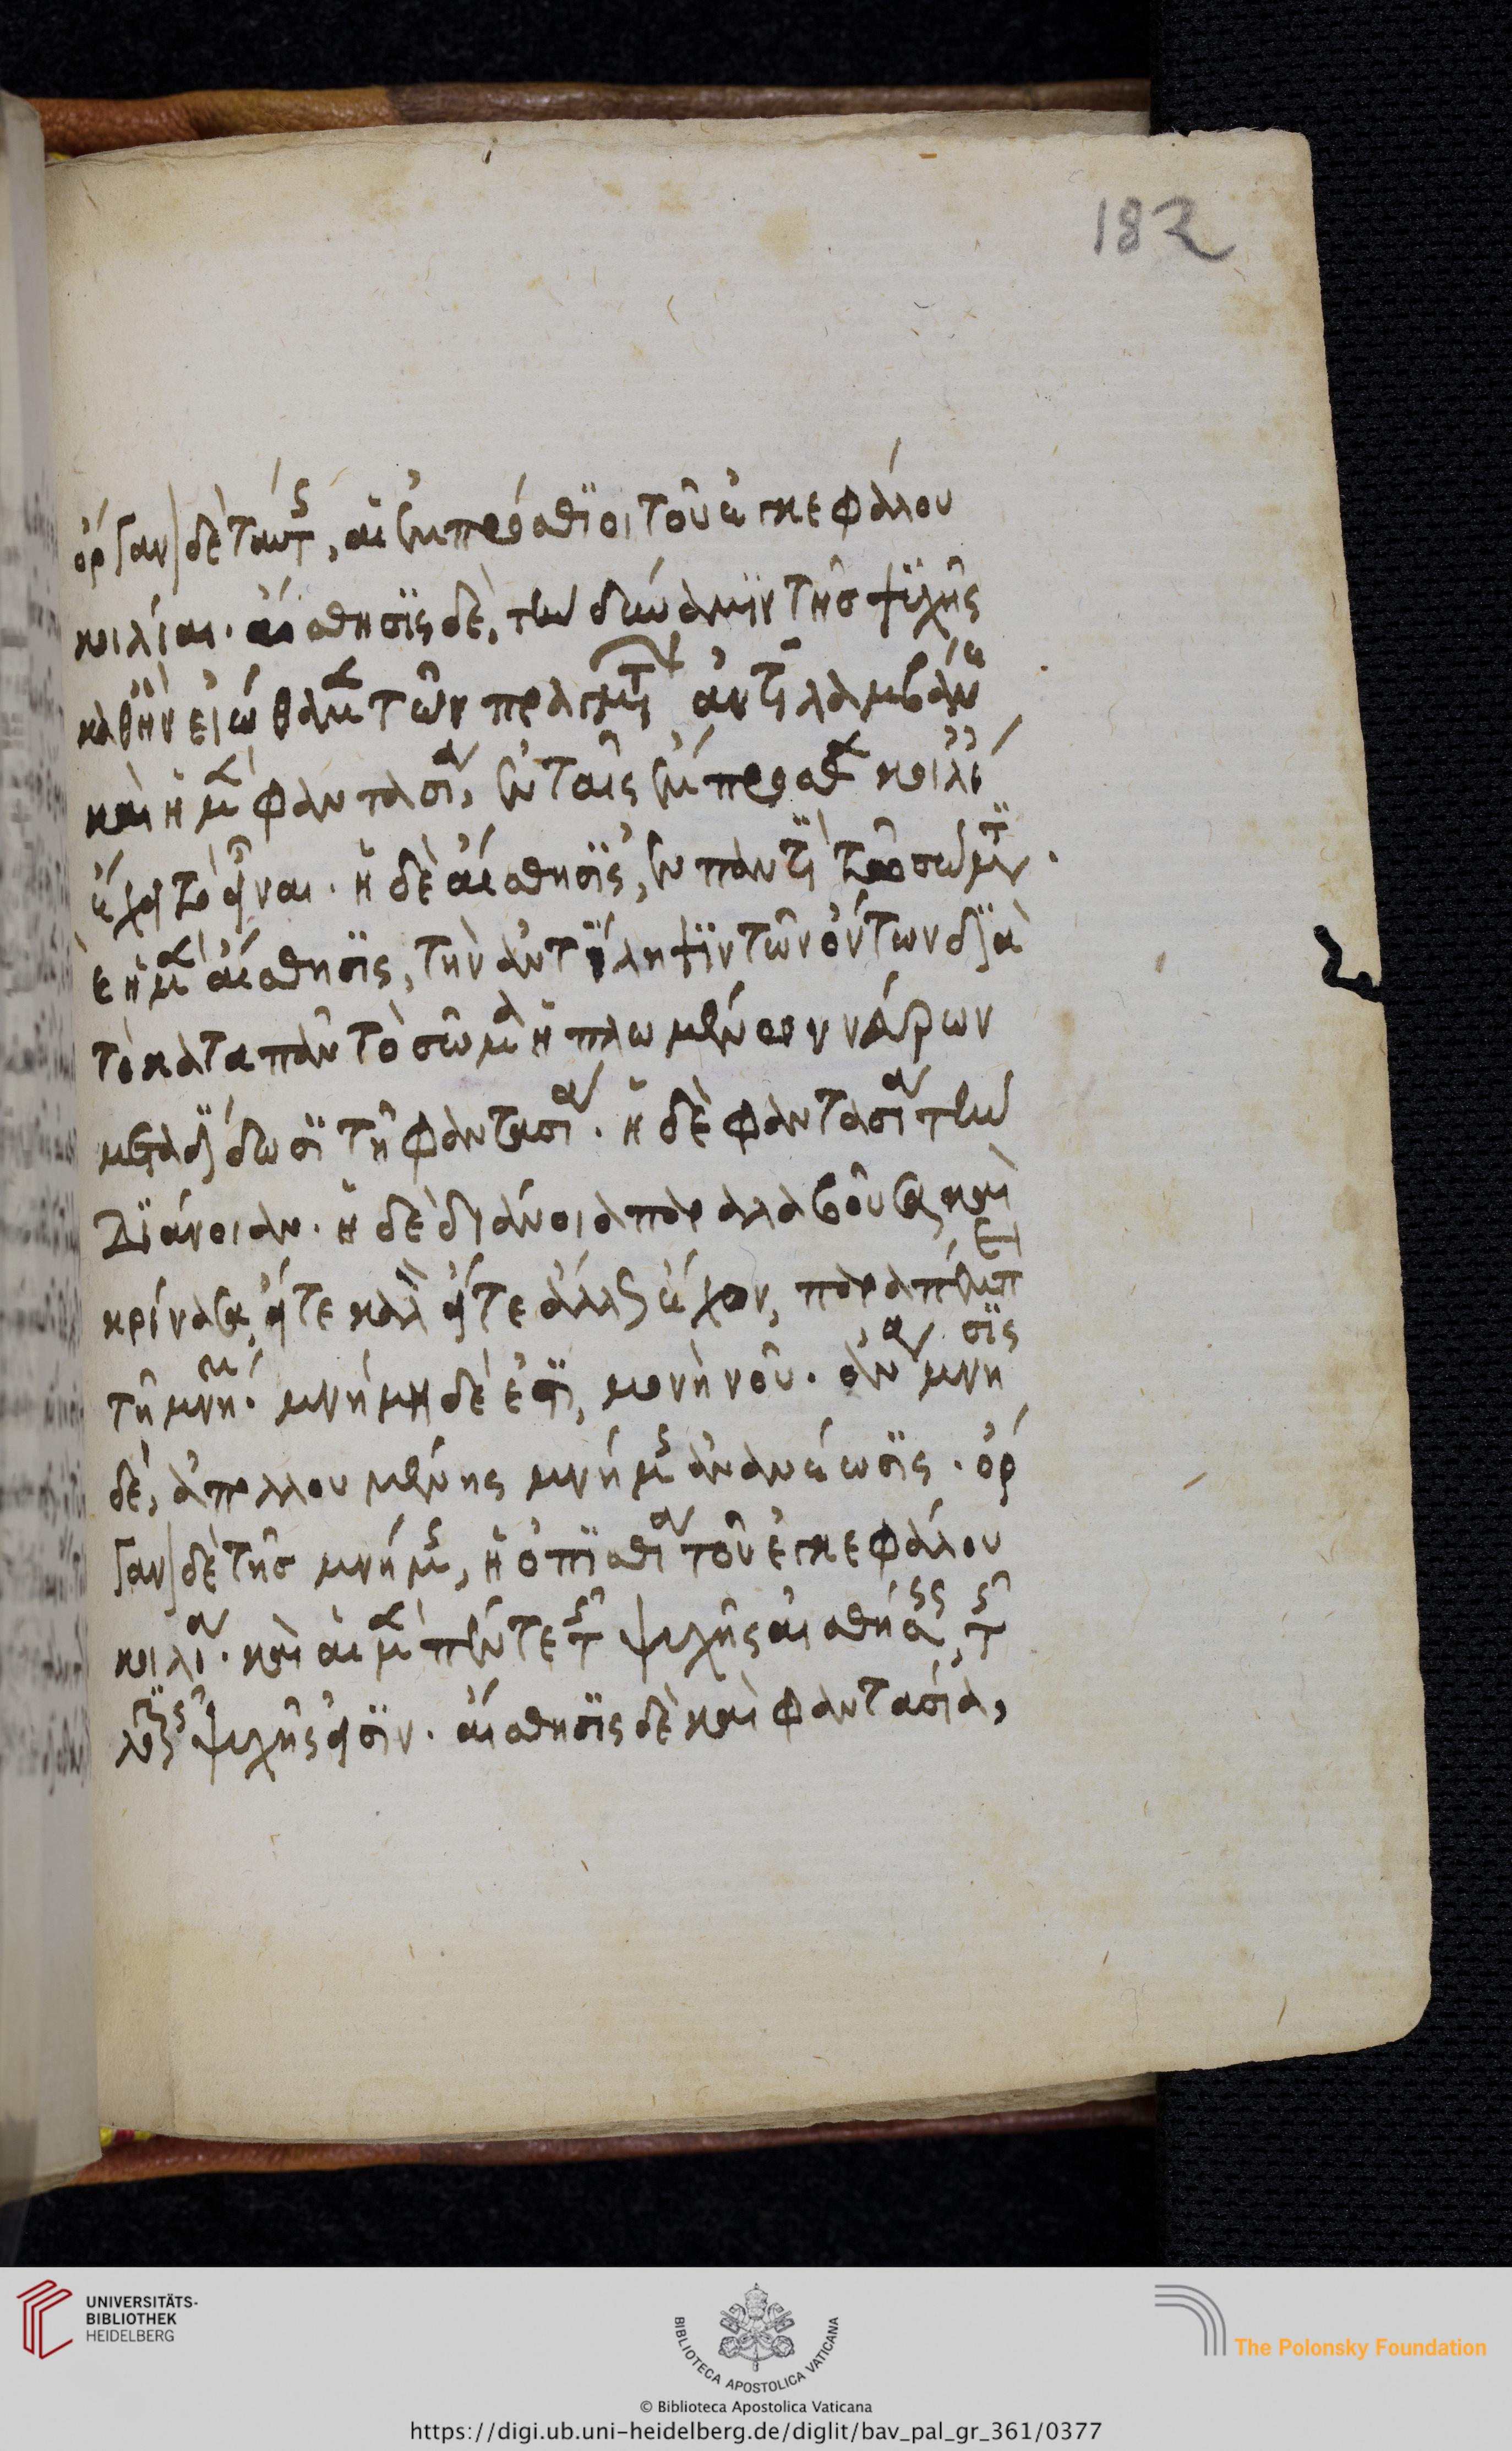 182
ὄργανον δὲ ταύτης, αἱ ἐμπρόσθιοι τοῦ ἐγκεφάλου
κοιλίαι. αἴσθησις δὲ, τὴν δύναμιν τῆς ψυχῆς
καθ' ἣν εἰώθαμεν τῶν πραγμάτων ἀντιλαμβάνεσθαι
καὶ ἡ μὲν φαντασία, ἐν ταῖς ἐμπροσθίαις κοιλίαις
ἔχει τὸ εἶναι. ἡ δὲ αἴσθησις, ἐν παντὶ τῷ σώματι.
ἡ μὲν αἴσθησις, τὴν ἀντίληψιν τῶν ὄντων διὰ
τὸ κατὰ πᾶν τὸ σῶμα ἡπλωμένον νεύρων
μεταδίδωσι τῇ φαντασίᾳ. ἡ δὲ φαντασία τὴν
Διάνοιαν. ἡ δὲ διάνοια παραλαβοῦσα καὶ
κρίνασα, εἴτε καλῶς εἴτε ἄλλως ἔχον, παραπέμπει
τῇ μνήμῃ. μνήμη δὲ ἐστι, μονὴ νοῦ. ἀνάμνησις
δὲ, ἀπολλουμένης μνήμης ἀνανέωσις. ὄρ
γανον δὲ τῆς μνήμης, ἡ ὀπισθία τοῦ ἐγκεφάλου
κοιλία. καὶ αἱ μὲν πέντε τῆς ψυχῆς αἰσθήσεις, τῆς
ψυχῆς εἰσὶν. αἴσθησις δὲ καὶ φαντασία,
UNIVERSITÄTS-
BIBLIOTHEK
HEIDELBERG
BIBLIOTECA APOSTOLICA VATICANA
The Polonsky Foundation
© Biblioteca Apostolica Vaticana
https://digi.ub.uni-heidelberg.de/diglit/bav_pal_gr_361/0377